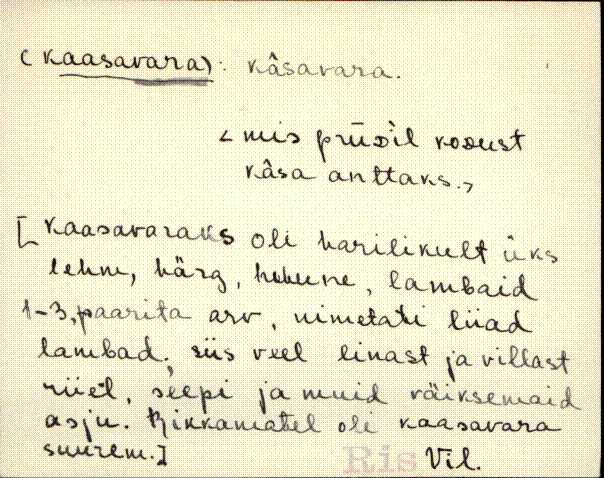 (kaasavara): kâsavara.
< mis prüDil koDust
kâsa anttaks.>
[kaasavaraks oli harilikult üks
lehm, härg, hobune, lambaid
1-3, paarita arv, nimetati liiad
lambad. siis veel linast ja villast
riiet, seepi ja muid väiksemaid
asju. Rikkamatel oli kaasavara
suurem.]
Ris Vil.